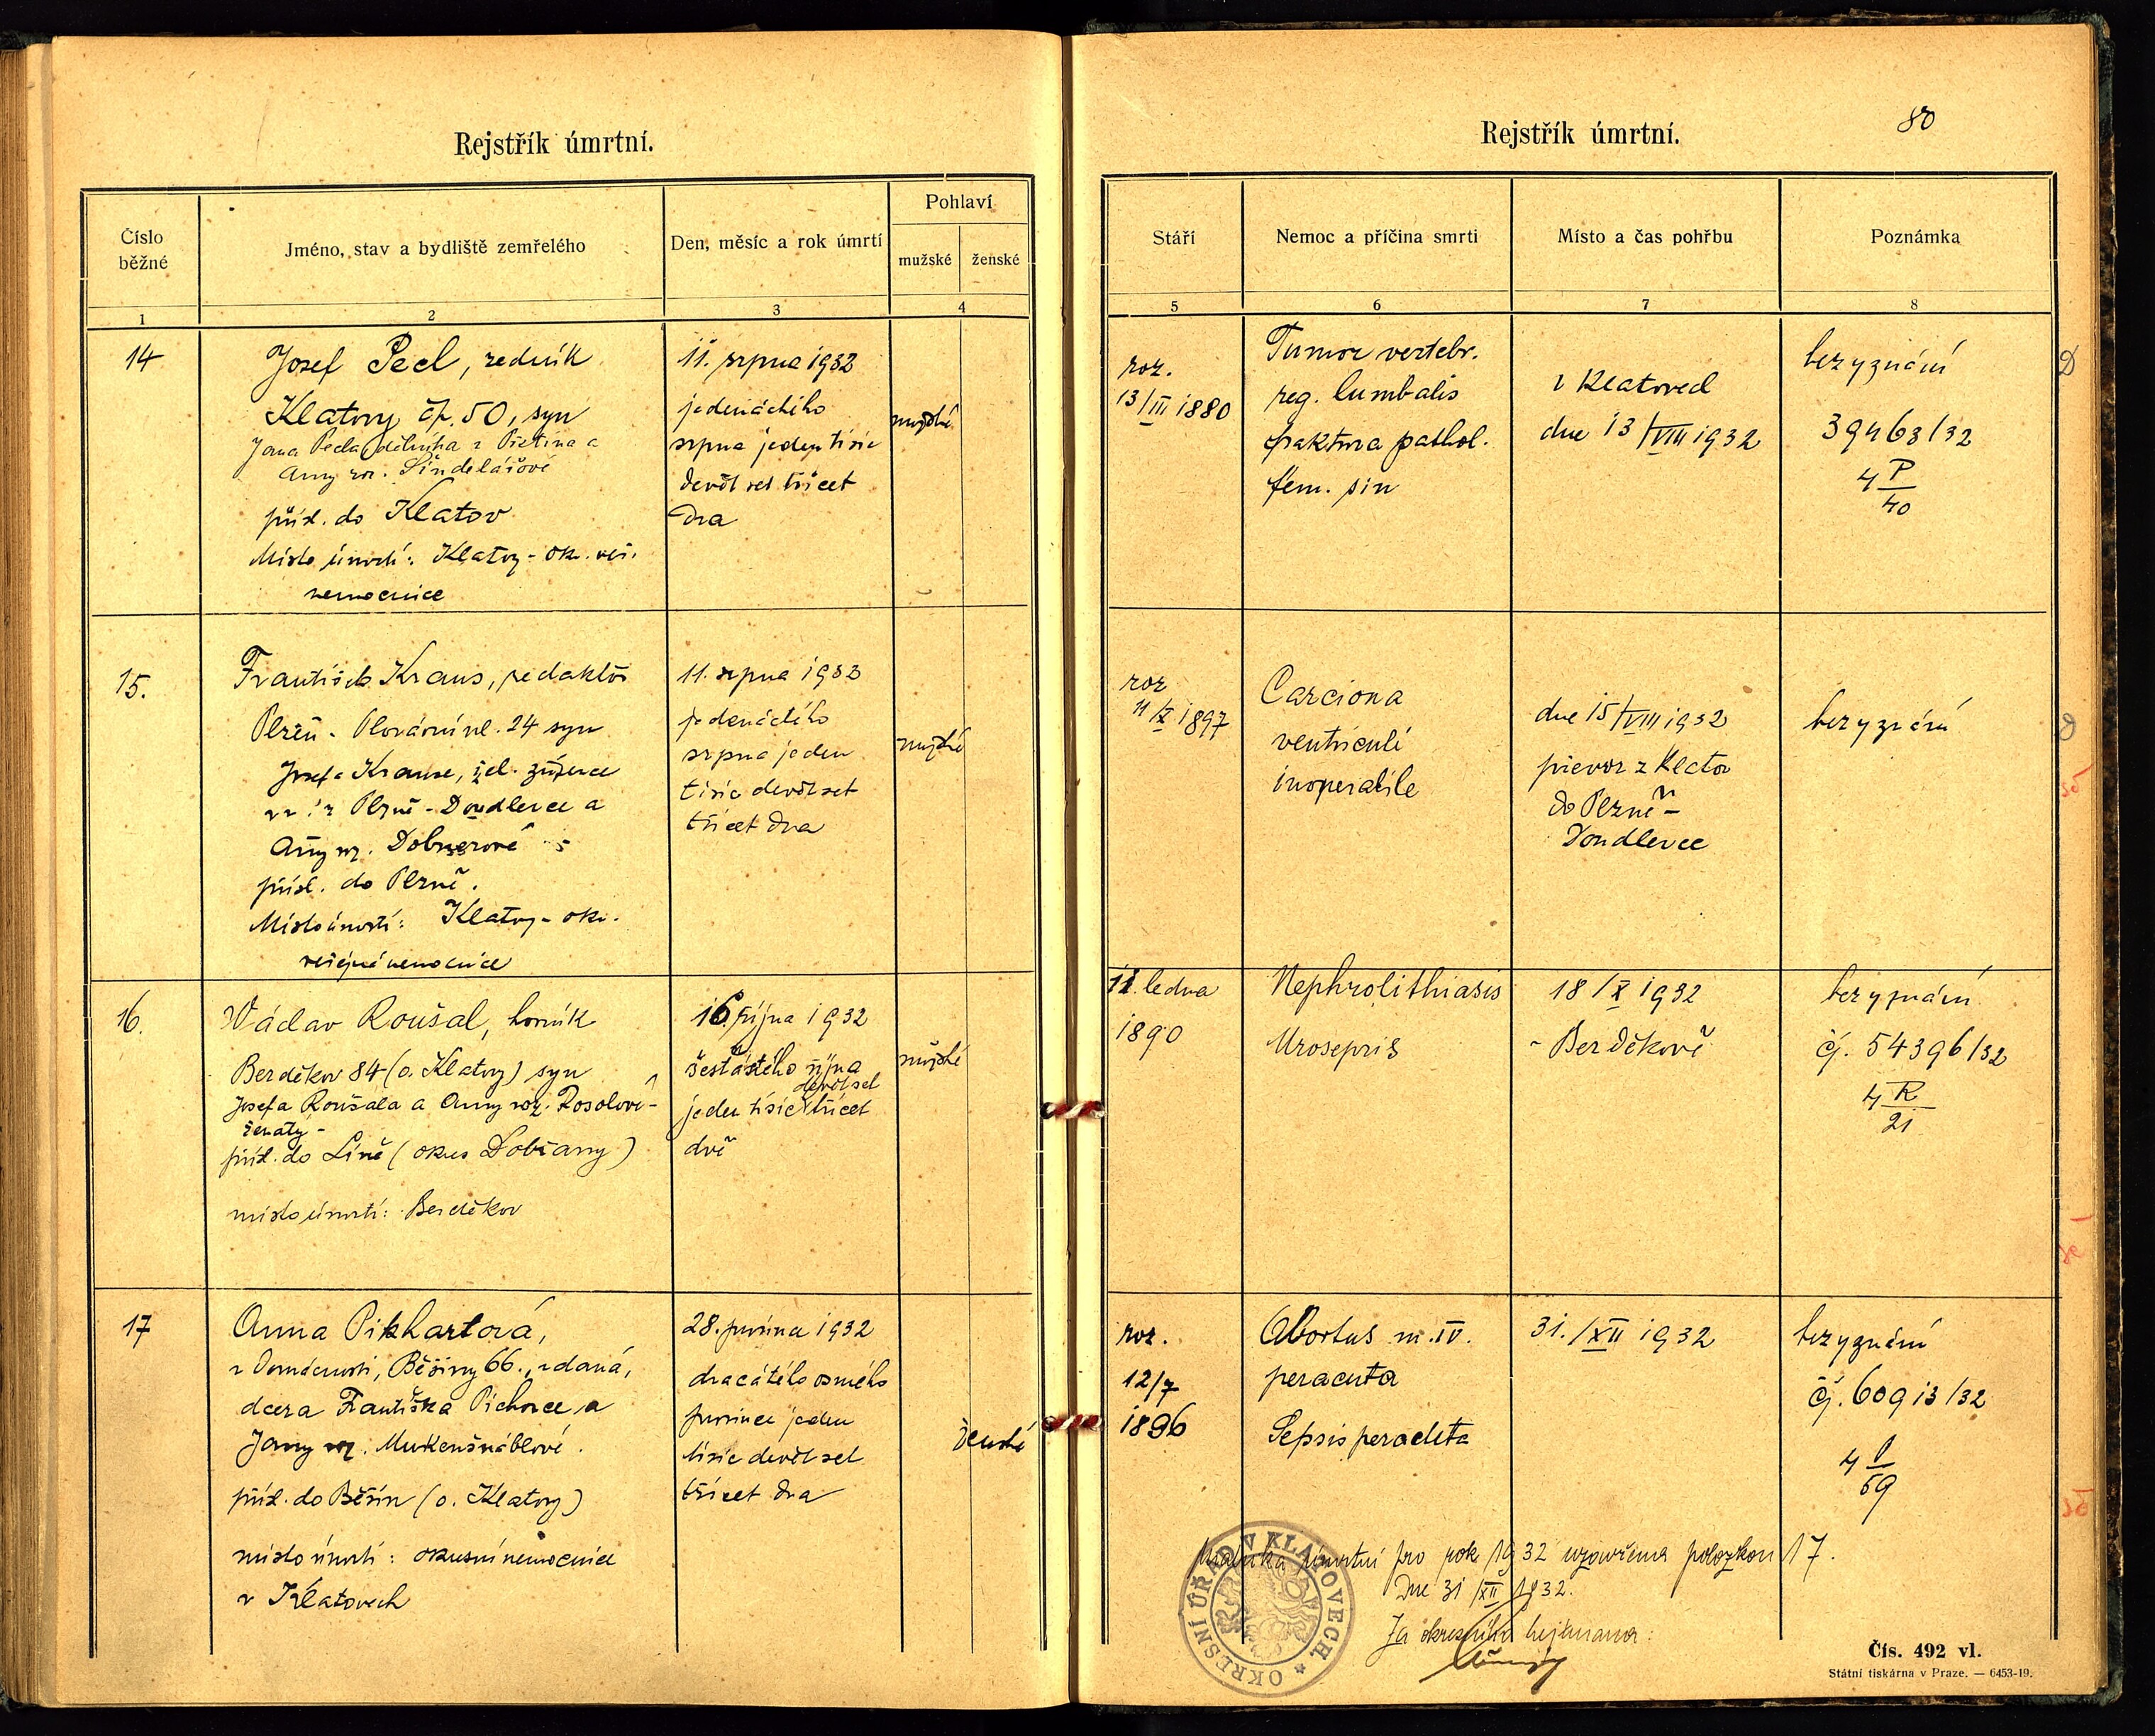 Rejstřík úmrtní.
Číslo běžné
Jméno, stav a bydliště zemřelého
Den, měsíc a rok úmrtí
Pohlaví
mužské
ženské
1
2
3
4
14
Josef Pecl, řezník
Klatovy čp. 50, syn
Jana Pecla, dělníka z
Anny roz. Šindelářové
přísl. do Klatov
Místo úmrtí: Klatovy - okr. veř.
nemocnice
11. srpna 1932
jedenáctého
srpna jeden tisíc
devět set třicet
dva
mužské
15.
František Kraus, redaktor
Plzeň - Plovární ul. 24 syn
Josefa Krause, žel. zřízence
v. v. z Plzně - Doudlevce a
Anny roz. Dobnerové
přísl. do Plzně.
Místo úmrtí: Klatovy - okr.
veřejná nemocnice
11. srpna 1932
jedenáctého
srpna jeden
tisíc devět set
třicet dva
mužské
16.
Václav Roušal, horník
Berděkov 84 (o. Klatovy) syn
Josefa Roušala a Anny roz. Rosolové -
ženatý -
přísl. do Líně (okres Dobřany)
místo úmrtí: Berděkov
16. října 1932
šestáctého října
devět set
jeden tisíc třicet
dvě
mužské
17
Anna Pikhartová,
v domácnosti, Běšiny 66., vdaná,
dcera Františka Pichovce a
Jany roz.
přísl. do Běšin (o. Klatovy)
místo úmrtí: okresní nemocnice
v Klatovech
28. prosince 1932
dvacátého osmého
prosince jeden
tisíc devět set
třicet dva
ženské
Rejstřík úmrtní.
80
Stáří
Nemoc a příčina smrti
Místo a čas pohřbu
Poznámka
5
6
7
8
roz.
13/III 1880
Tumor vertebr.
reg. lumbalis
fraktura pathol.
fem. sin
v Klatovech
dne 13/VIII 1932
bez vyznání
39463/32
4 P
40
roz
11/X 1897
Carciona
ventriculi
inoperabile
dne 15/VIII 1932
převoz z Klatov
do Plzně -
Doudlevce
bez vyznání
11. ledna
1890
Nephrolithiasis
Urosepris
18/X 1932
v Berděkově
bez vyznání
čj. 54396/32
4 R
21
roz.
12/7
1896
Abortus m. IV.
peracuta
Sepsis peracuta
31./XII 1932
bez vyznání
čj. 60913/32
4 P
59
Matrika úmrtní pro rok 1932 uzavřena položkou 17.
Dne 31/XII 1932.
Za okresního hejtmana:
OKRESNÍ ÚŘAD V KLATOVECH *
Čís. 492 vl.
Státní tiskárna v Praze. — 6453-19.